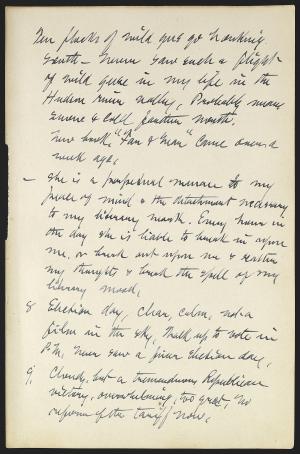 Ten flocks of wild geese go honking
south – Never saw such a flight
of wild geese in my life in the
Hudson river valley. Probably means
snow & cold further north.
New book "Far & Near" came over a
week ago.
– She is a perpetual menace to my
peace of mind & the detachment necessary
to my literary work. Every hour in
the day she is liable to break in upon
me, or break out upon me & scatter
my thoughts & break the spell of my
literary mood.
8 Election day, clear, calm, not a
film in the sky, Walk up to vote in
P.M. Never saw a finer election day.
9. Cloudy, but a tremendous Republican
victory, overwhelming, too great, no
reform of the tariff now.